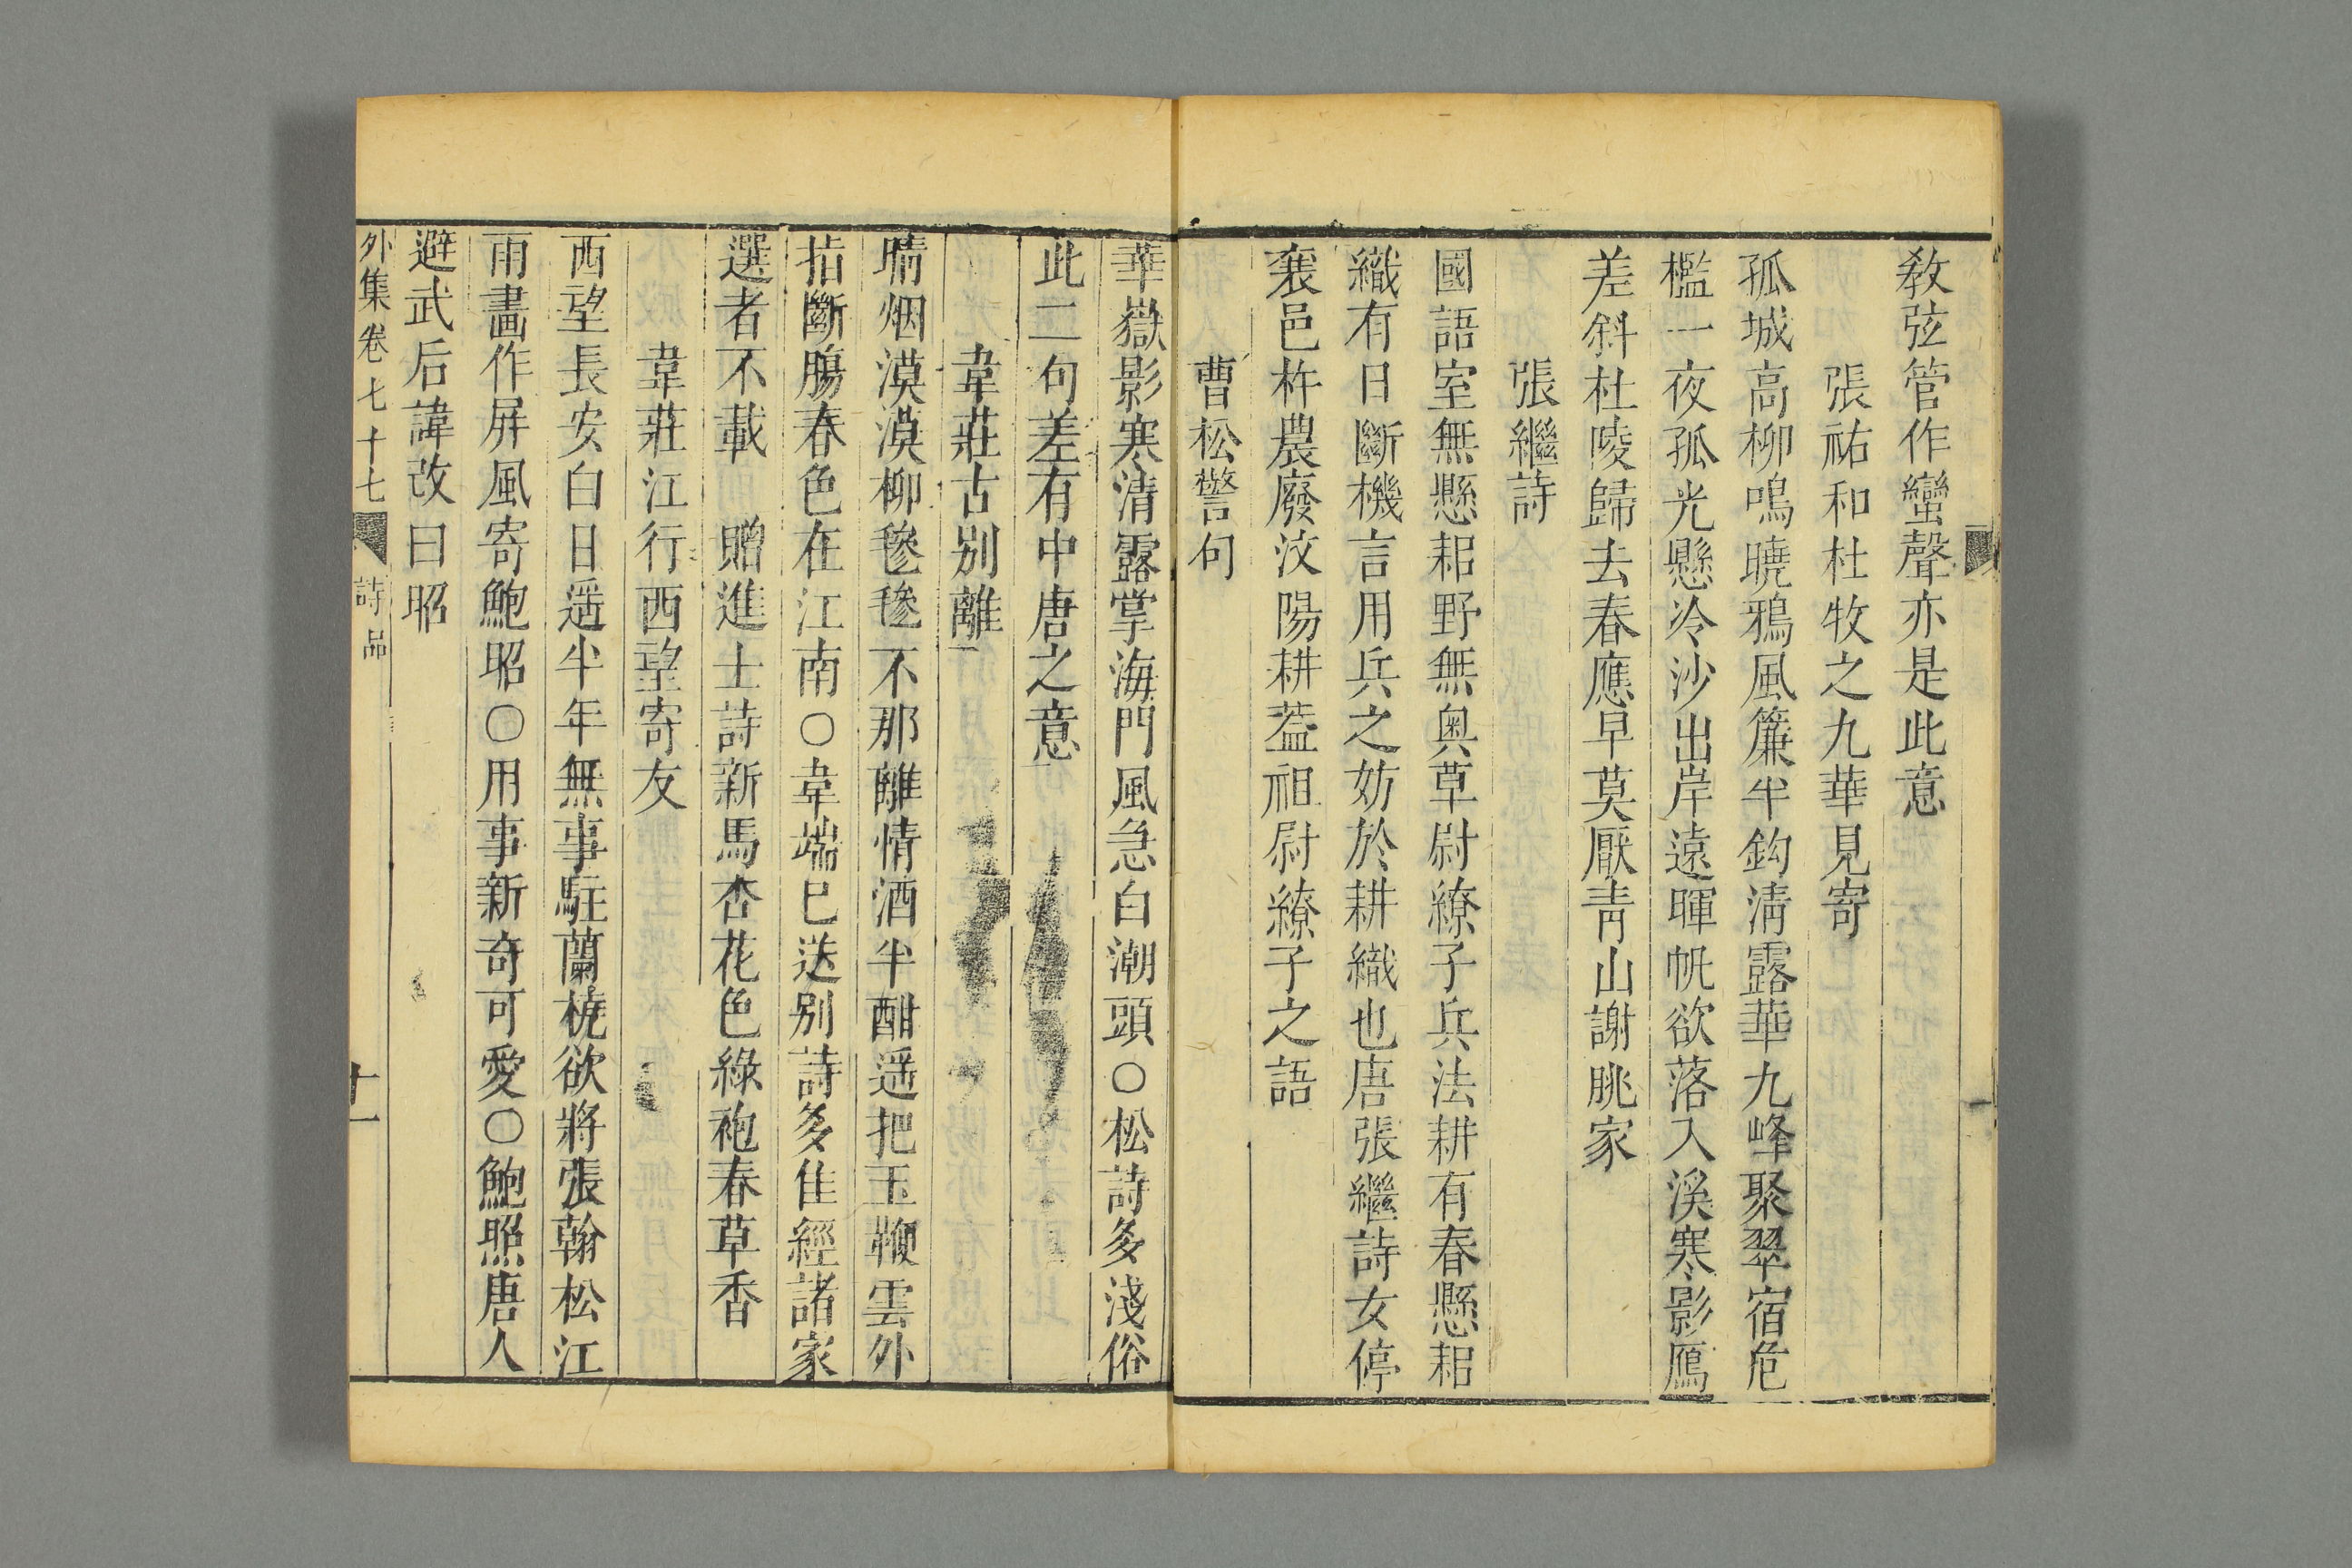 教弦管作蠻聲亦是此意
張祐和杜牧之九華見寄
孤城高柳鳴曉鴉風簾半鈎清露華九峰聚翠宿危
檻一夜孤光懸冷沙出岸遠暉帆欲落入溪寒影鴈
差斜杜陵歸去春應早莫厭青山謝朓家
張繼詩
國語室無懸耜野無奥草尉繚子兵法耕有春懸耜
織有日斷機言用兵之妨於耕織也唐張繼詩女停
襄邑杵農廢汶陽耕葢祖尉繚子之語
曹松警句
華嶽影寒清露掌海門風急白潮頭○松詩多淺俗
此二句差有中唐之意
韋莊古别離
晴烟漠漠柳毿毿不那離情酒半酣遥把玉鞭雲外
指斷膓春色在江南○韋端已送别詩多佳經諸家
選者不載　贈進士詩新馬杏花色綠袍春草香
韋莊江行西望寄友
西望長安白日遥半年無事駐蘭橈欲將張翰松江
雨畫作屛風寄鮑昭○用事新奇可愛○鮑照唐人
避武后諱改曰昭
外集卷七十七　詩品　十一